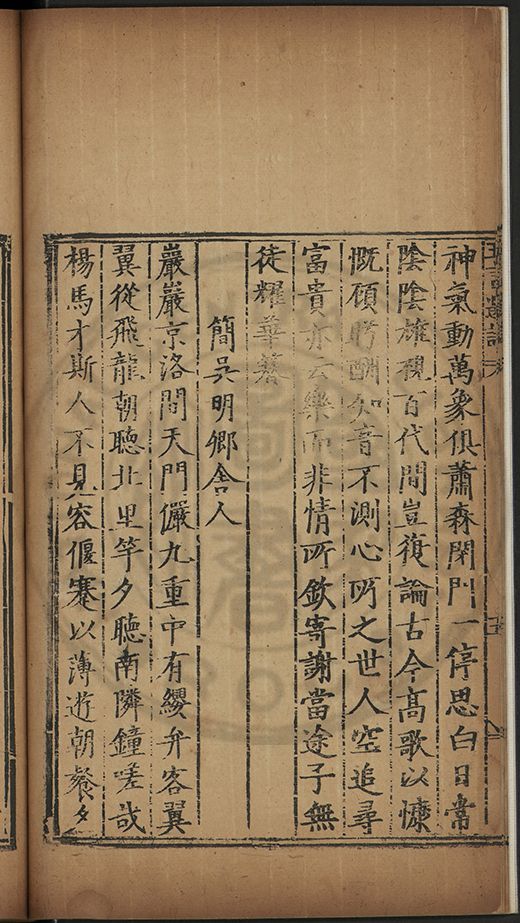 神氣動萬象俱蕭森閉門一停思白日常
陰陰雄視百代間豈復論古今高歌以慷
慨頋眄酬知音不測心所之世人空追尋
富貴亦云樂而非情所欽寄謝當途子無
徒耀華簪
簡吳明卿舍人
巖巖京洛間天門儼九重中有纓弁客翼
翼從飛龍朝聽北里竽夕聽南隣鐘嗟哉
楊馬才斯人不見容偃蹇以薄遊朝餐夕